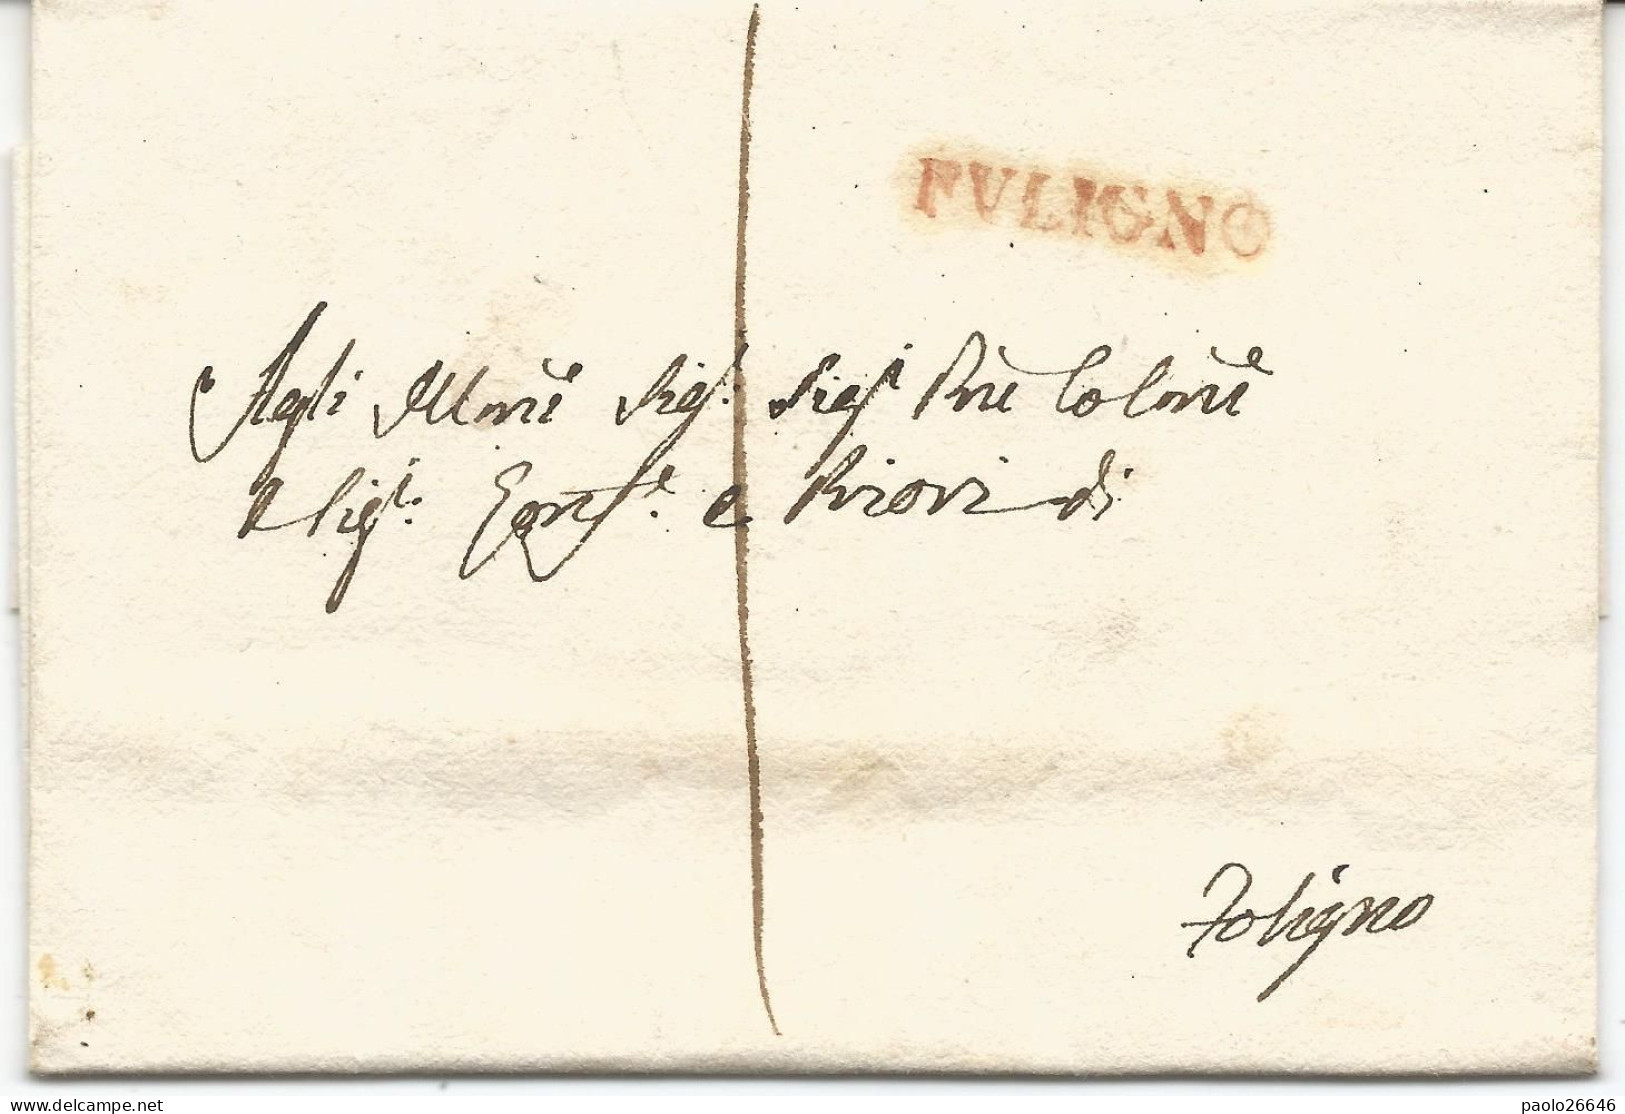 FVLIGNO
Agli Ill.mi Sig.i Sig.i Pni Col.mi
e Sig.i Gonf.e e Priori di
Foligno
www.delcampe.net
paolo26646